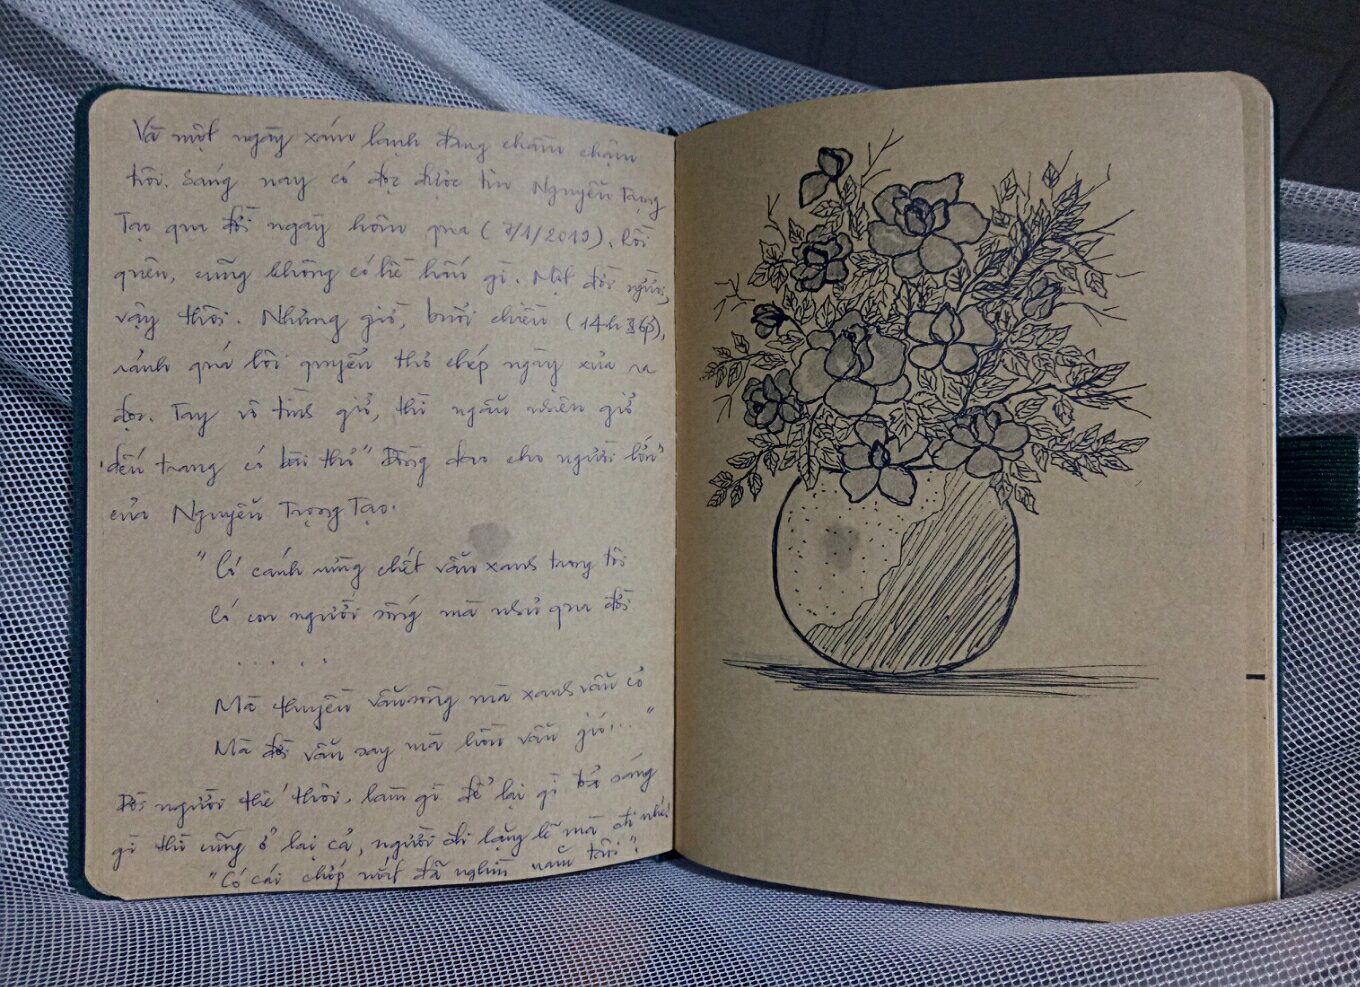 Và một ngày xám lạnh đang chầm chậm
trôi. Sáng nay có đọc được tin Nguyễn Trọng
Tạo qua đời ngày hôm qua (7/1/2019), lỗi
quên, cũng không có hề hấn gì. Một đời người,
vậy thôi. Nhưng giờ, buổi chiều (14h36p),
rảnh quá lôi quyển thơ chép ngày xưa ra
đọc. Tay vô tình giở, thì ngẫu nhiên giở
đến trang có bài thơ "Đồng dao cho người lớn"
của Nguyễn Trọng Tạo.
"Có cánh rừng chết vẫn xanh trong tôi
Có con người sống mà như qua đời
. . . . .
Mà thuyền vẫn sông mà xanh vẫn cỏ
Mà đời vẫn say mà hồn vẫn gió..."
Đời người thế thôi, làm gì để lại gì
gì thì cũng ở lại cả, người đi lặng lẽ mà đi nhé!
"Có cái chớp mắt đã nghìn năm trôi".